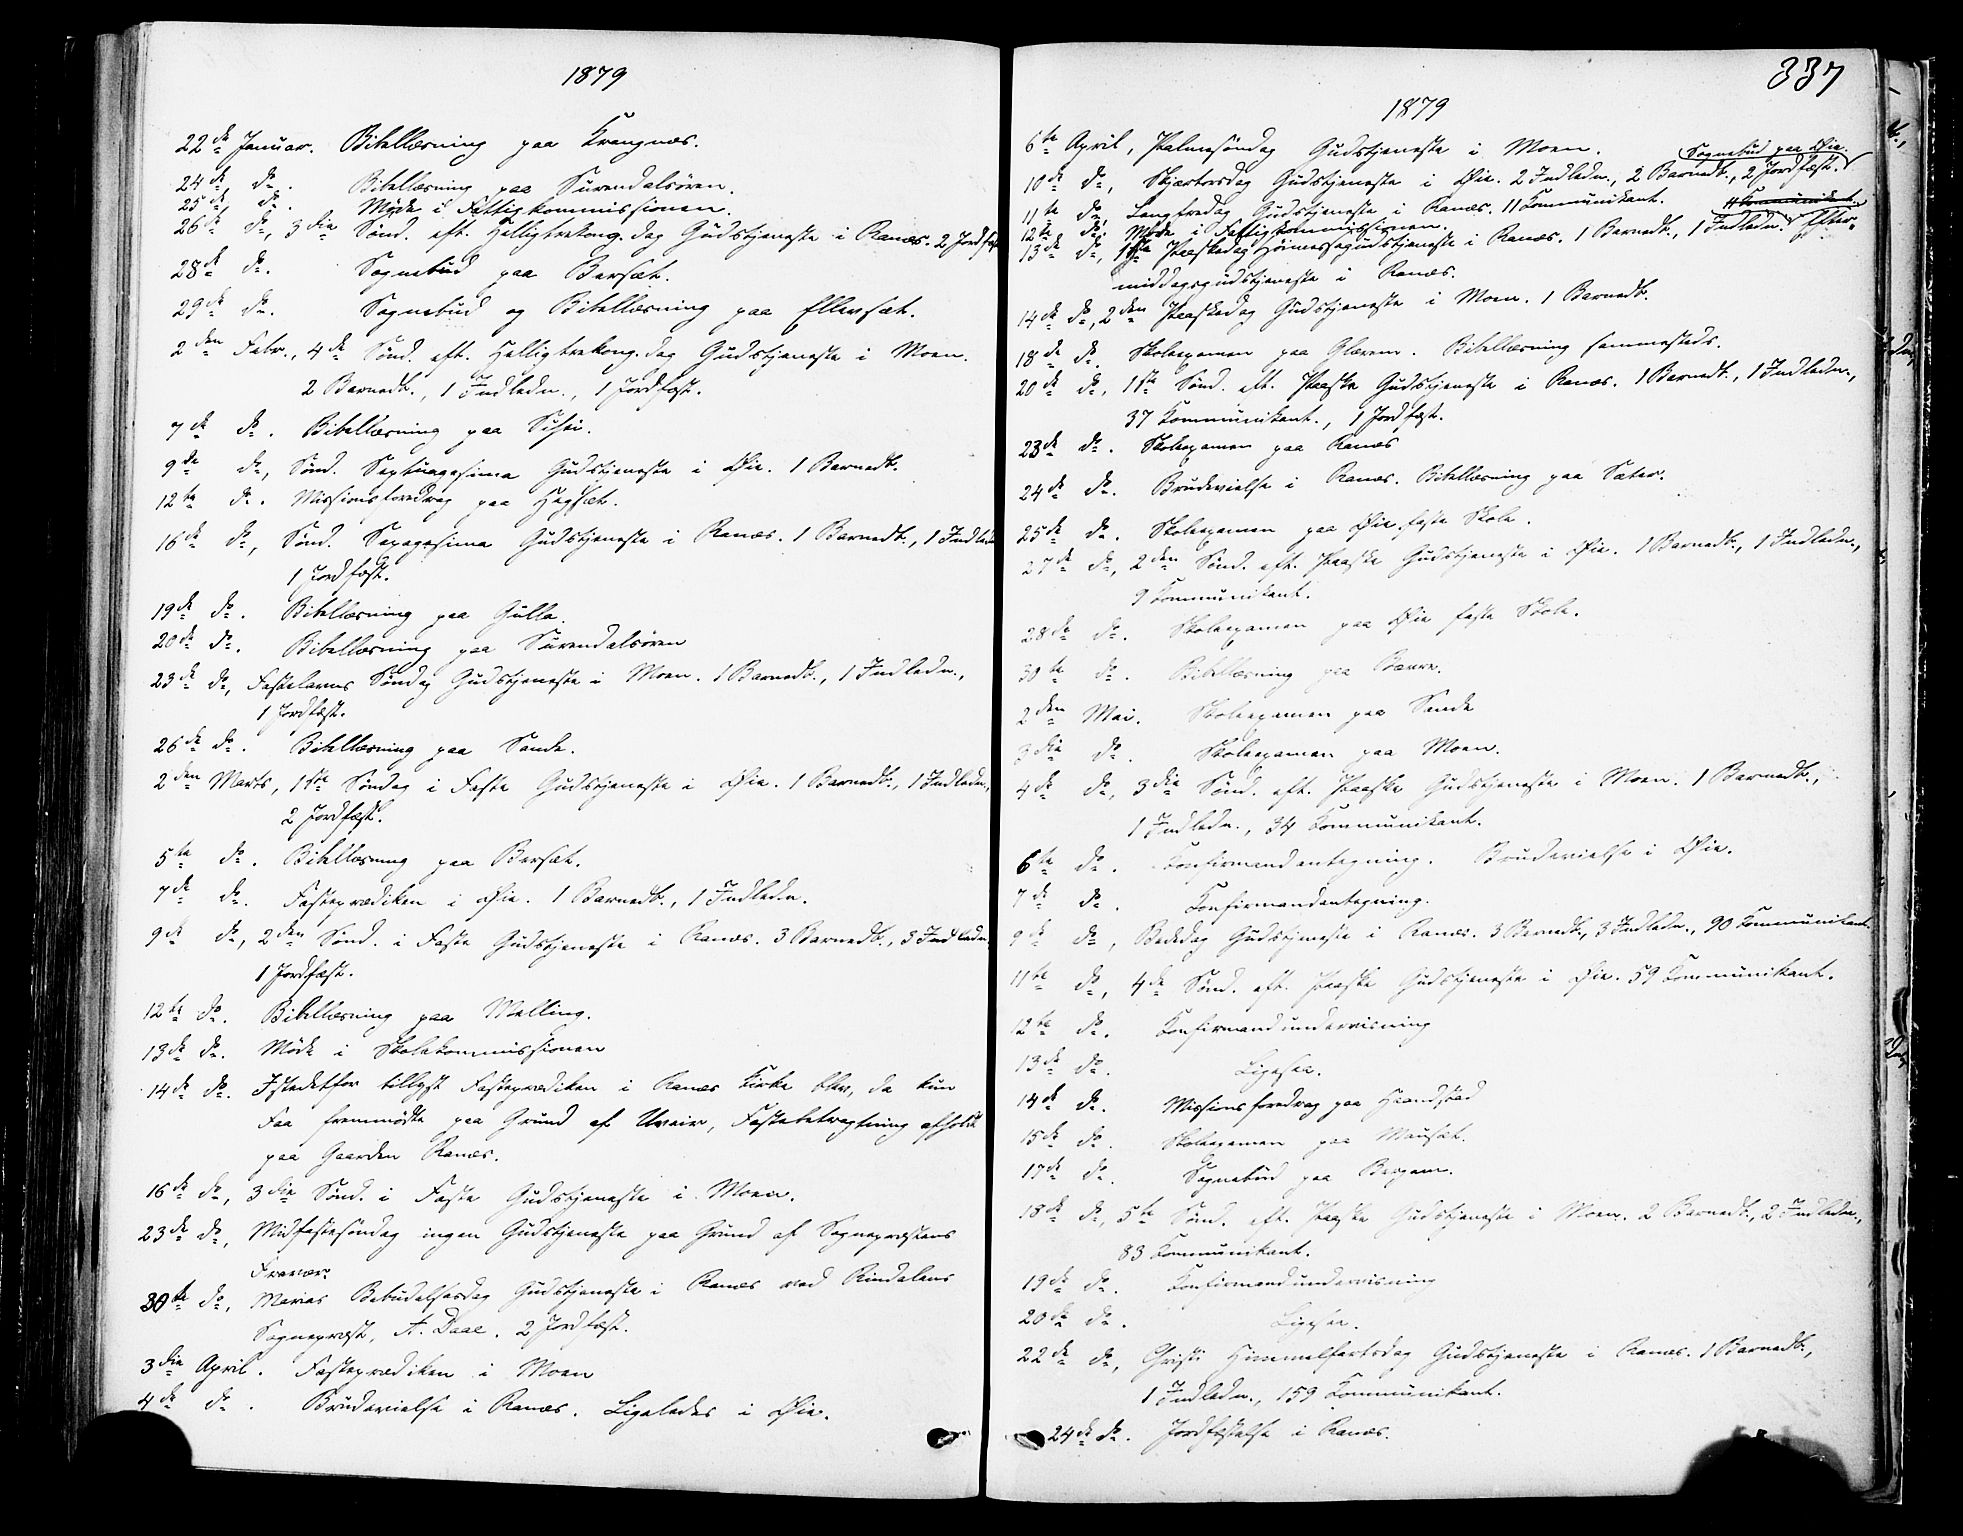 1879
22de Januar. Bibellæsning paa Krangnæs.
24de do. Bibellæsning paa Surendalsören.
25de do. Möde i Fattigkommissionen.
26de do, 3die Sönd. eft. Helligtrekong. dag Gudstjeneste i Ranæs. 2 Jordfæst
28de do. Sognebud paa Bersæt.
29de do. Sognebud og Bibellæsning paa Ellevsæt.
2den Febr., 4de Sönd. eft. Helligtrekong. dag Gudstjeneste i Moen.
2 Barnedb., 1 Indledn., 1 Jordfæst.
7de do. Bibellæsning paa
9de do, Sönd. Septuagesima Gudstjeneste i Øie. 1 Barnedb.
12te do. Missionsforedrag paa Hegsæt.
16de do, Sönd. Sexagesima Gudstjeneste i Ranæs. 1 Barnedb., 1 Indledn
1 Jordfæst.
19de do. Bibellæsning paa Gulla.
20de do. Bibellæsning paa Surendalsören
23de do, Fastelavns Söndag Gudstjeneste i Moen. 1 Barnedb., 1 Indledn.,
1 Jordfæst.
26de do. Bibellæsning paa Sande.
2den Marts, 1ste Söndag i Faste Gudstjeneste i Øie. 1 Barnedb., 1 Indledn.,
2 Jordfæst.
5te do. Bibellæsning paa Bersæt.
7de do. Fasteprædiken i Øie. 1 Barnedb., 1 Indledn.
9de do, 2den Sönd. i Faste Gudstjeneste i Ranæs. 3 Barnedb., 3 Indledn.
1 Jordfæst.
12te do. Bibellæsning paa Melling.
13de do. Möde i Skolekommissionen
14de do. Istedetfor tillyst Fasteprædiken i Ranæs Kirke blev, da kun
Faa fremmödte paa Grund af Uveir, Fastebetragtning afholdt
paa Gaarden Ranæs.
16de do, 3die Sönd. i Faste Gudstjeneste i Moen.
23de do, Midfastesöndag ingen Gudstjeneste paa Grund af Sognepræstens
Fravær.
30te do, Marias Bebudelsesdag Gudstjeneste i Ranæs ved Rindalens
Sognepræst, A. Daae. 2 Jordfæst.
3die April. Fasteprædiken i Moen
4de do. Brudevielse i Ranæs. Ligeledes i Øie.
337
1879
6te April, Palmesöndag Gudstjeneste i Moen. Sognebud paa Øie.
10de do, Skjærtorsdag Gudstjeneste i Øie. 2 Indledn., 2 Barnedb., 2 Jordfæst.
11te do, Langfredag Gudstjeneste i Ranæs. 11 Kommunikant. 11 Kommunikant.
12te do. Möde i Fattigkommissionen.
13de do, 1ste Paaskedag Höimessegudstjeneste i Ranæs. 1 Barnedb., 1 Indledn. Efter-
middagsgudstjeneste i Ranæs.
14de do, 2den Paaskedag Gudstjeneste i Moen. 1 Barnedb.
18de do. Skoleexamen paa Glærem. Bibellæsning sammesteds.
20de do, 1ste Sönd. eft. Paaske Gudstjeneste i Ranæs. 1 Barnedb., 1 Indledn.,
37 Kommunikant., 1 Jordfæst.
23de do. Skoleexamen paa Ranæs
24de do. Brudevielse i Ranæs. Bibellæsning paa Sæter.
25de do. Skoleexamen paa Øie faste Skole.
27de do, 2den Sönd. eft. Paaske Gudstjeneste i Øie. 1 Barnedb., 1 Indledn.,
9 Kommunikant.
28de do. Skoleexamen paa Øie faste Skole.
30te do. Bibellæsning paa Bævre.
2den Mai. Skoleexamen paa Sande
3die do. Skoleexamen paa Moen.
4de do, 3die Sönd. eft. Paaske Gudstjeneste i Moen. 1 Barnedb.,
1 Indledn., 34 Kommunikant.
6te do. Konfirmandantegning. Brudevielse i Øie.
7de do. Konfirmandantegning.
9de do, Bededag Gudstjeneste i Ranæs. 3 Barnedb., 3 Indledn., 90 Kommunikant.
11te do, 4de Sönd. eft. Paaske Gudstjeneste i Øie. 59 Kommunikant.
12te do. Konfirmandundervisning
13de do. Ligesaa.
14de do. Missionsforedrag paa Haandstad
15de do. Skoleexamen paa Mausæt.
17de do. Sognebud paa Bergem.
18de do, 5te Sönd. eft. Paaske Gudstjeneste i Moen. 2 Barnedb., 2 Indledn.,
83 Kommunikant.
19de do. Konfirmandundervisning
20de do. Ligesaa.
22de do, Christi Himmelfartsdag Gudstjeneste i Ranæs. 1 Barnedb.,
1 Indledn., 159 Kommunikant.
24de do. Jordfæstelse i Ranæs.